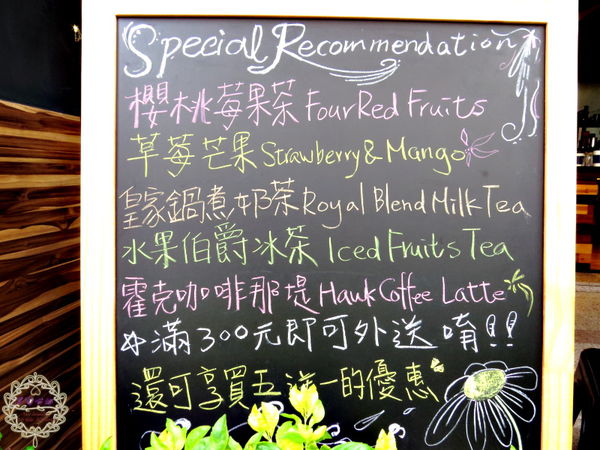 Special Recommendation
櫻桃莓果茶 Four Red Fruits
草莓芒果 Strawberry & Mango
皇家鍋煮奶茶 Royal Blend Milk Tea
水果伯爵冰茶 Iced Fruits Tea
霍克咖啡那堤 Hawk Coffee Latte
滿300元即可外送唷!!
還可享買五送一的優惠